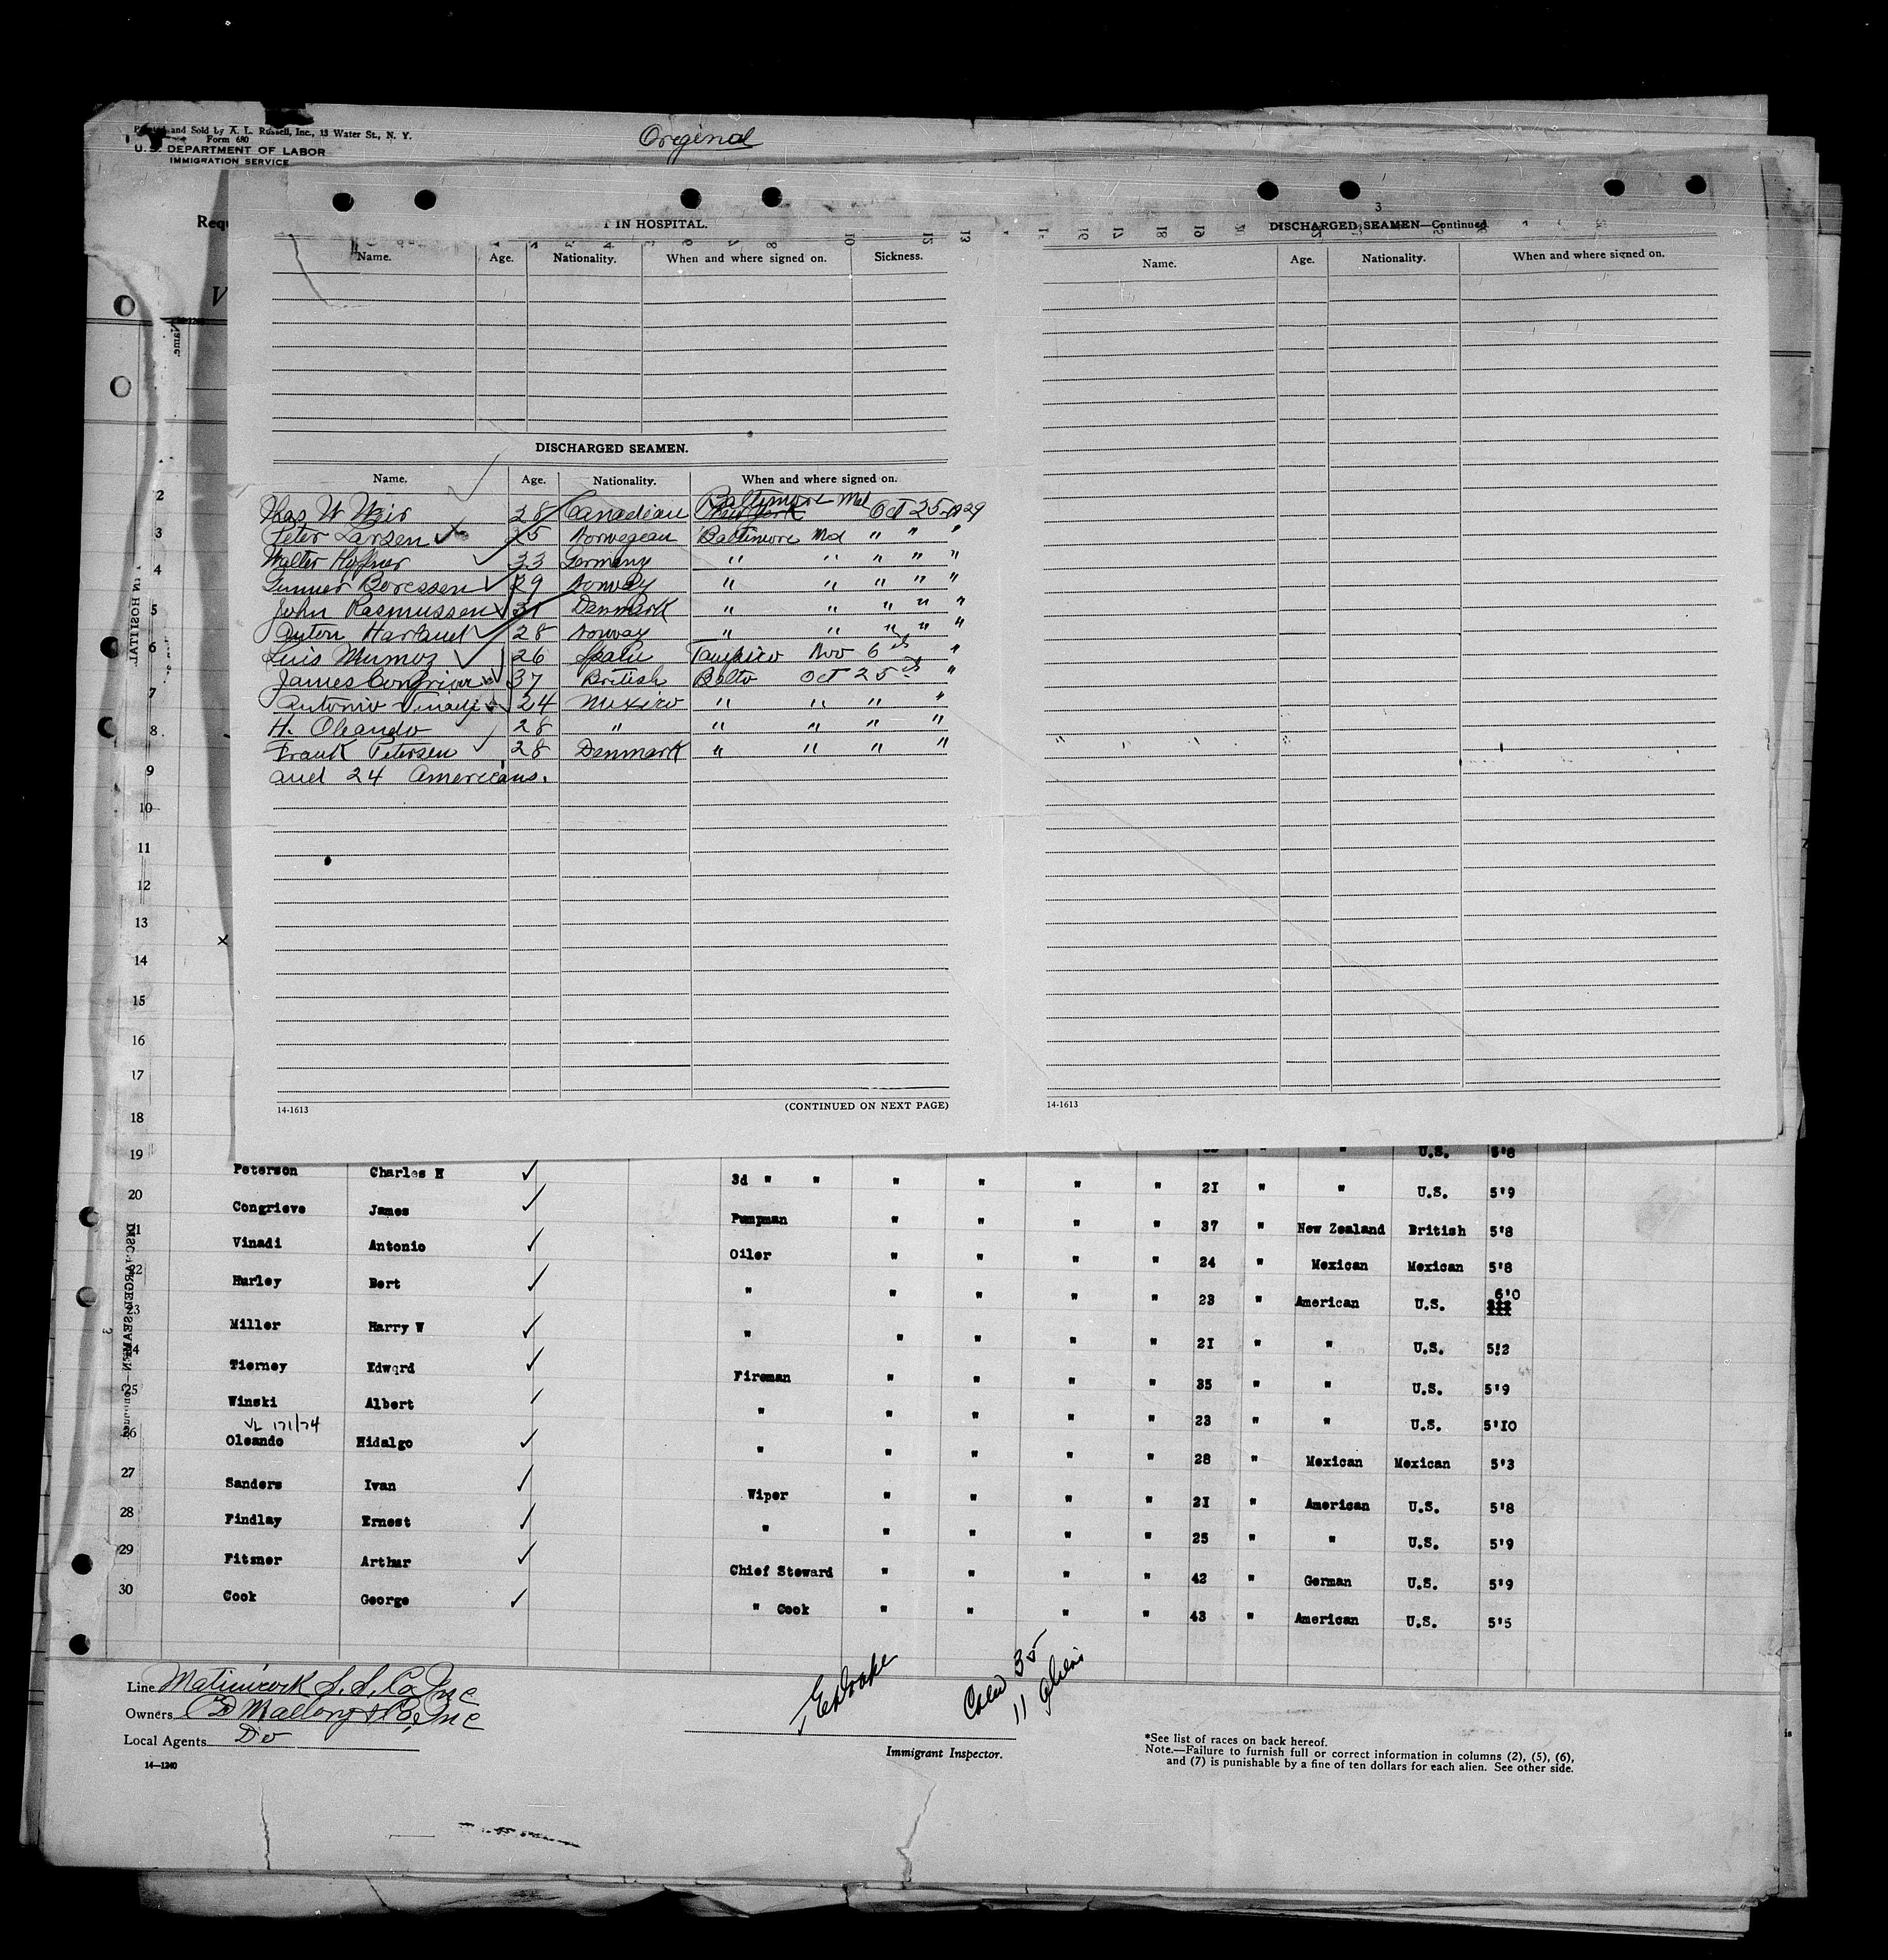 Printed and Sold by A. L. Russell, Inc., 15 Water St., N. Y.
Form 680
U. S. DEPARTMENT OF LABOR
IMMIGRATION SERVICE
Original
IN HOSPITAL.
Name. Age. Nationality. When and where signed on. Sickness.
DISCHARGED SEAMEN.
Name. Age. Nationality. When and where signed on.
W Weir 28 Canadian Baltimore Md New York Oct 25 1929
Peter Larsen 25 Norwegean Baltimore Md " " "
Walter 33 Germany " " " " "
Gunner Boressen 29 Norway " " " " "
John Rasmussen 31 Denmark " " " " "
Anton 28 Norway " " " " "
Luis Munoz 26 Spain Tampico Nov 6 th "
James Congrieve 37 British Balto Oct 25 th "
Antonio Vinadi 24 Mexico " " " "
H. Oleando 28 " " " " "
Frank Petersen 28 Denmark " " " "
and 24 Americans.
14-1613 (CONTINUED ON NEXT PAGE)
3
DISCHARGED SEAMEN—Continued
Name. Age. Nationality. When and where signed on.
14-1613
2
3
4
5
6
7
8
9
10
11
12
13
14
15
16
17
18
19 " " U.S. 5'8
Peterson Charles H 3d " " " " " " 21 " " U.S. 5'9
20 Congrieve James Pumpman " " " " 37 " New Zealand British 5'8
21 Vinadi Antonio Oiler " " " " 24 " Mexican Mexican 5'8
22 Hurley Bert " " " " " 23 " American U.S. 6'0
23 Miller Harry W " " " " " 21 " " U.S. 5'2
24 Tierney Edward Fireman " " " " 35 " " U.S. 5'9
25 Winski Albert " " " " " 23 " " U.S. 5'10
VL 171/74
26 Oleando Hidalgo " " " " " 28 " Mexican Mexican 5'3
27 Sanders Ivan Wiper " " " " 21 " American U.S. 5'8
28 Findlay Ernest " " " " " 25 " " U.S. 5'9
29 Fitsner Arthur Chief Steward " " " " 42 " German U.S. 5'9
30 Cook George " Cook " " " " 43 " American U.S. 5'5
Line Matinicock S. S. Co Inc
Owners C D Mallory & Co, Inc
Local Agents Do
14—1240
Crew 35
11 Aliens
Immigrant Inspector.
*See list of races on back hereof.
Note.—Failure to furnish full or correct information in columns (2), (5), (6),
and (7) is punishable by a fine of ten dollars for each alien. See other side.